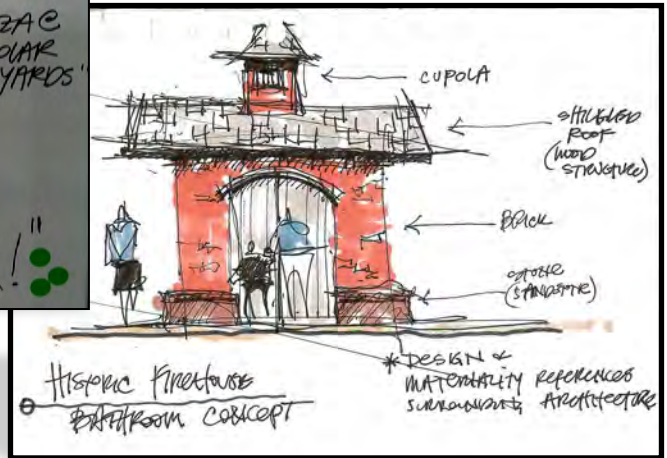 ZA @
OLAR
YARDS"
!"
CUPOLA
SHINGLED
ROOF
(WOOD
STRUCTURE)
BRICK
STONE
(SANDSTONE)
* DESIGN &
MATERIALITY REFERENCES
SURROUNDING ARCHITECTURE
HISTORIC FIREHOUSE
BATHROOM CONCEPT